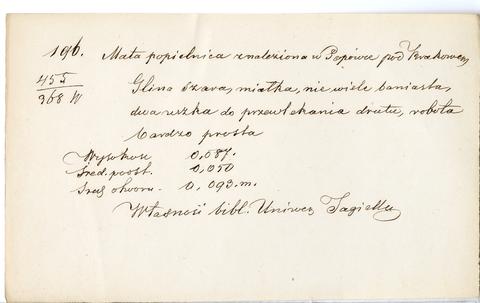 196. Mała popielnica znaleziona w Popówce pod Krakowem,
455
368 W
Glina szara, miałka, nie wiele baniasta,
dwa uszka do przewlekania drutu, robota
bardzo prosta
Wysokość 0,087.
Śred. podst. 0,050
Śred. otworu. 0,093. m.
Własność bibl. Uniwer. Jagiellu